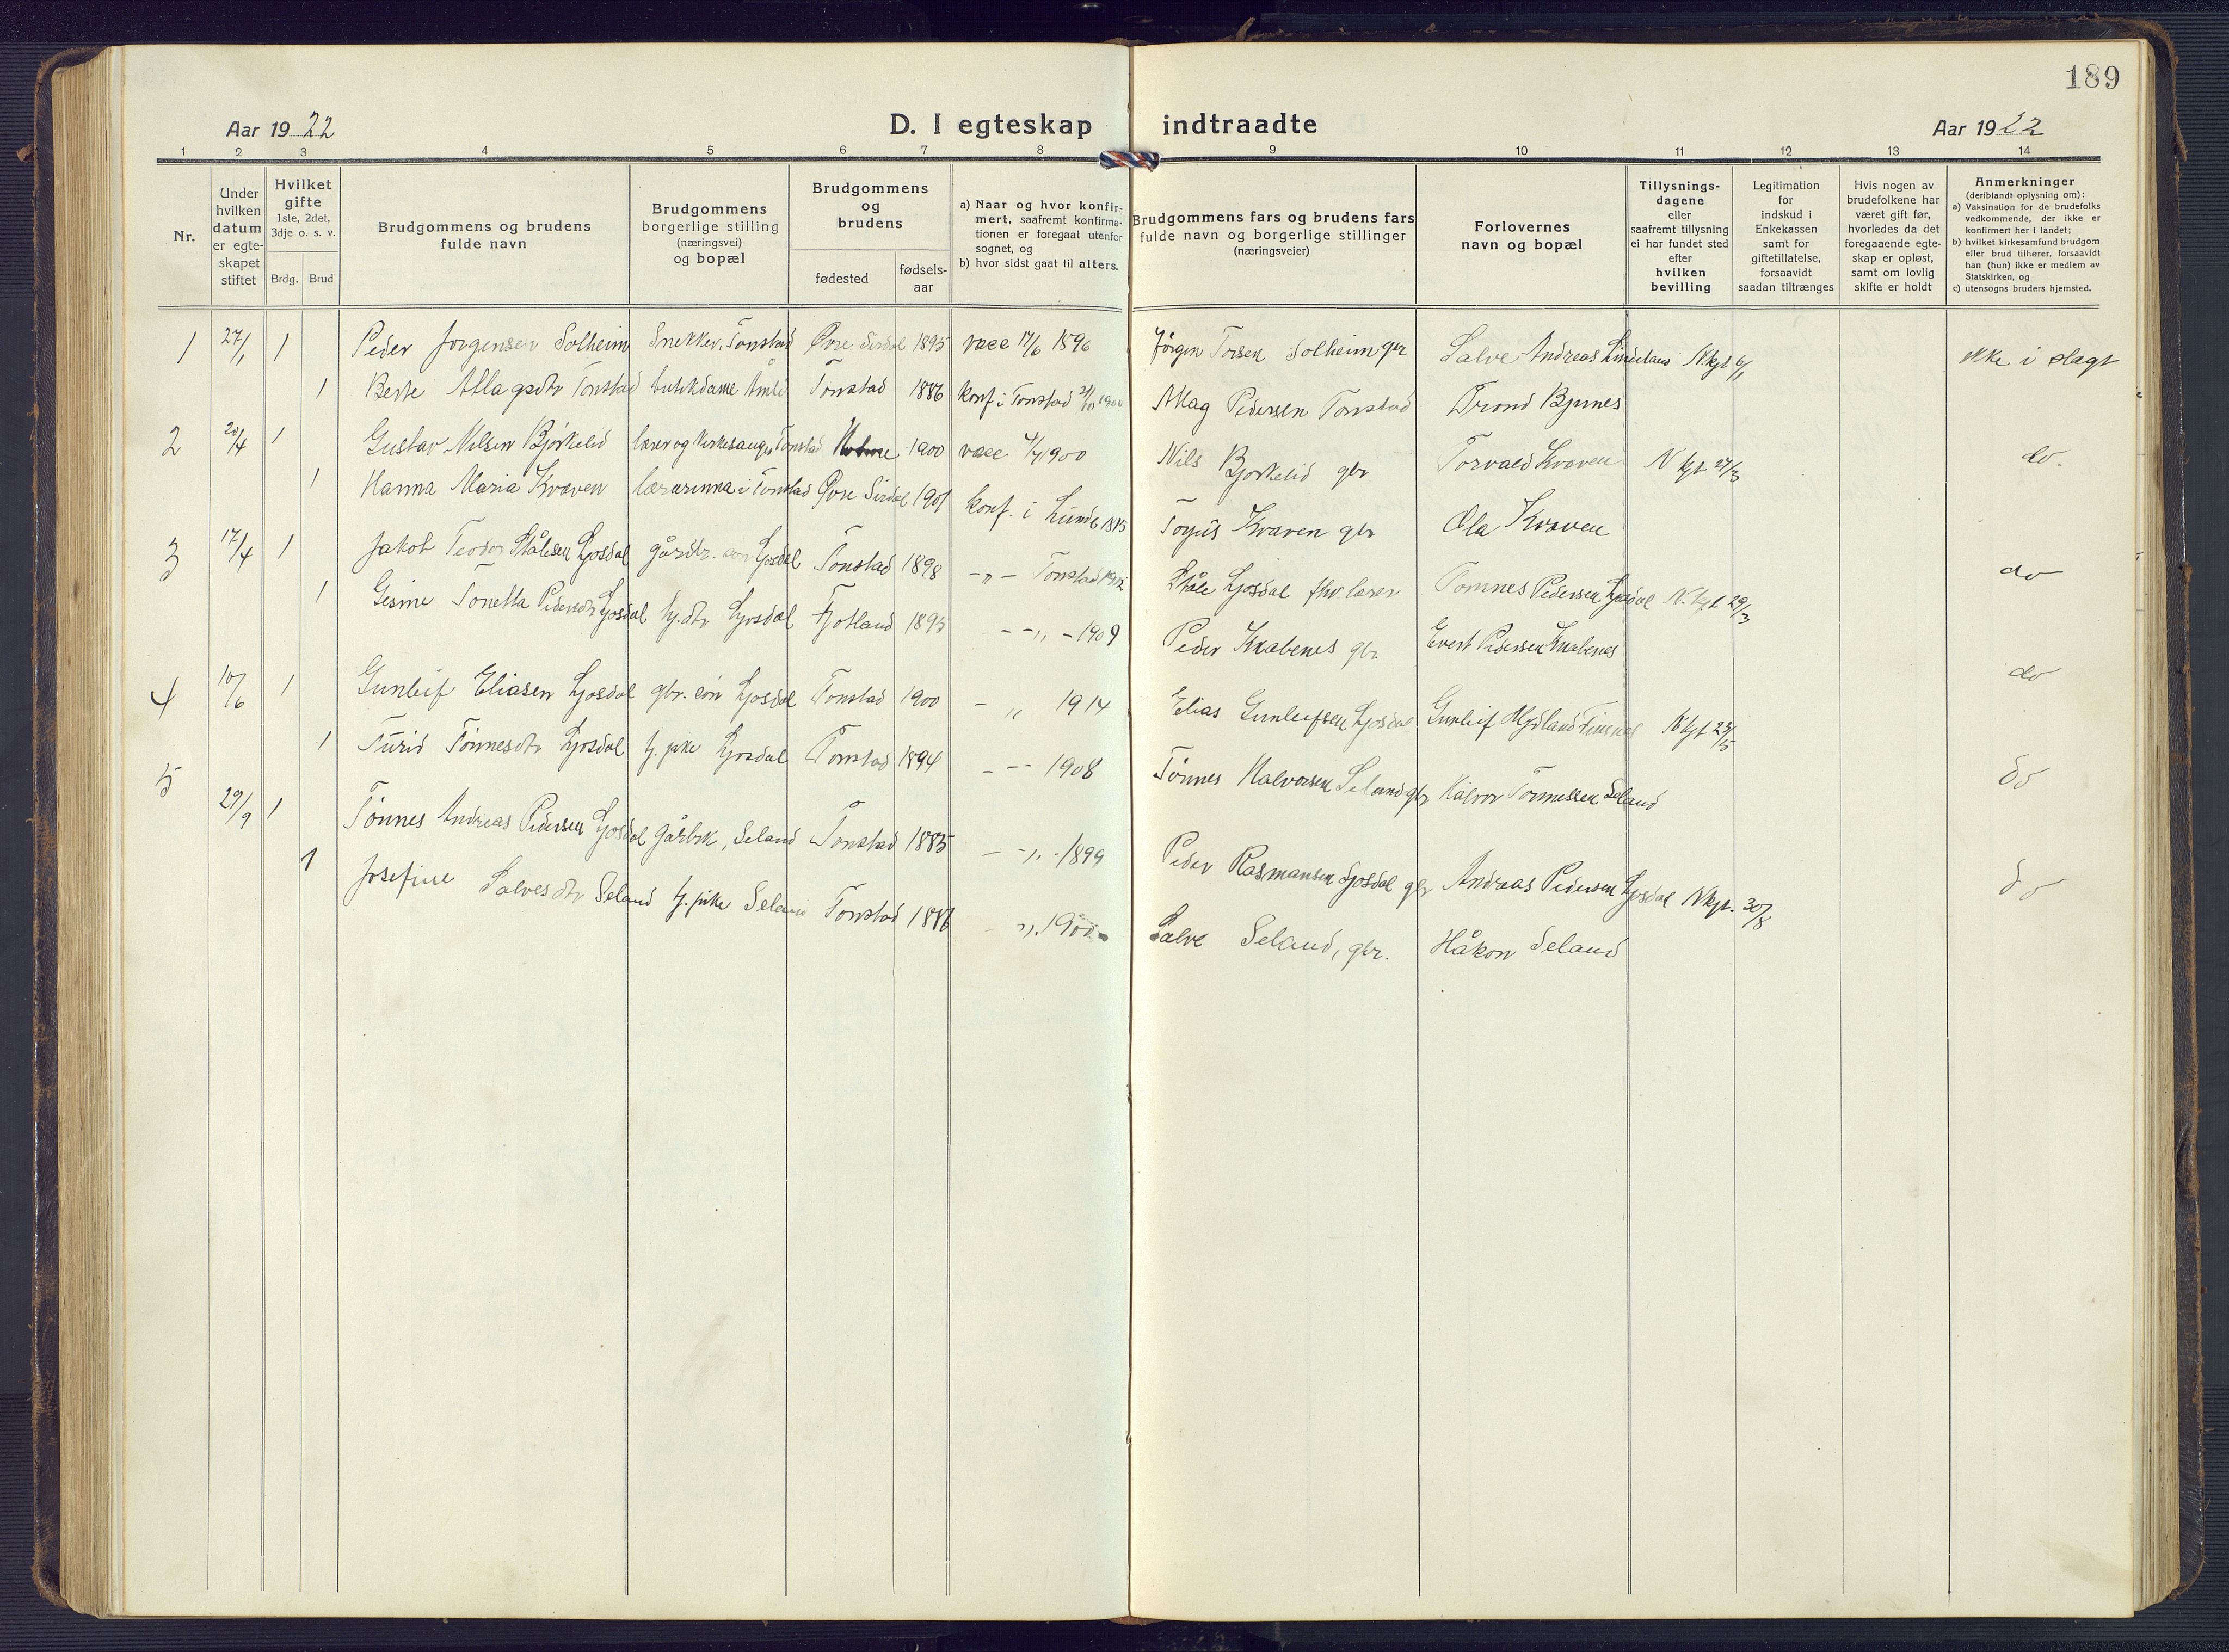 189
Aar 1922
D. I egteskap indtraadte
Aar 1922
1 2 3 4 5 6 7 8 9 10 11 12 13 14
Nr.
Under hvilken datum er egte-skapet stiftet
Hvilket gifte 1ste, 2det, 3dje o. s. v.
Brdg. Brud
Brudgommens og brudens fulde navn
Brudgommens borgerlige stilling (næringsvei) og bopæl
Brudgommens og brudens
fødested
fødsels-aar
a) Naar og hvor konfir-mert, saafremt konfirma-tionen er foregaat utenfor sognet, og
b) hvor sidst gaat til alters.
Brudgommens fars og brudens fars fulde navn og borgerlige stillinger (næringsveier)
Forlovernes navn og bopæl
Tillysnings-dagene eller saafremt tillysning ei har fundet sted efter hvilken bevilling
Legitimation for indskud i Enkekassen samt for giftetillatelse, forsaavidt saadan tiltrænges
Hvis nogen av brudefolkene har været gift før, hvorledes da det foregaaende egte-skap er opløst, samt om lovlig skifte er holdt
Anmerkninger (deriblandt oplysning om):
a) Vaksination for de brudefolks vedkommende, der ikke er konfirmert her i landet;
b) hvilket kirkesamfund brudgom eller brud tilhører, forsaavidt han (hun) ikke er medlem av Statskirken, og
c) utensogns bruders hjemsted.
1 27/1 1 Peder Jørgensen Solheim Snekker, Tonstad Øvre Sirdal 1895 vacc 17/6 1896 Jørgen Torsen Solheim gbr Salve Andreas Lindeland N.kgt 6/1 ikke i slagt
1 Berte Atlagsdtr Tonstad butikdame Åmli Tonstad 1886 konf i Tonstad 21/10 1900 Atlag Pedersen Tonstad Trond Bjunes
2 20/4 1 Gustav Nilsen Bjørkelid lærer og kirkesanger Tonstad 1900 vacc 4/7 1900 Nils Bjørkelid gbr Torvald Kvæven N kgt 27/3 do.
1 Hanna Maria Kvæven lærerinna i Tonstad Øvre Sirdal 1901 konf. i Lunde 1915 Torjus Kvæven gbr Ola Kvæven
3 17/4 1 Jakob Teodor Ståhsen Ljosdal gårdbr. søn Ljosdal Tonstad 1898 -"- Tonstad 1912 Ståle Ljosdal fhv lærer Tomnes Pedersen Ljosdal N. kgt 29/3 do
1 Gesine Tonetta Pedersdtr Ljosdal hj. dtr Ljosdal Fjotland 1895 -"- 1909 Peder Knabenes gbr Evert Pedersen Knabenes
4 10/6 1 Gunleif Eliasen Ljosdal gbr. søn Ljosdal Tonstad 1900 - " 1914 Elias Gunleifsen Ljosdal Gunleif Hydland N kgt 24/5 do
1 Turid Tønnesdtr Ljosdal hj. pike Ljosdal Tonstad 1894 - - - 1908 Tønnes Halvorsen Seland gbr Halvor Tønnessen Seland do
5 29/9 1 Tønnes Andreas Pedersen Ljosdal gårbrk, Seland Tonstad 1885 - " - 1899 Peder Rasmansen Ljosdal gbr Andreas Pedersen Ljosdal N kgt. 30/8 do
1 Josefine Salvesdtr Seland hj. pike Seland Tonstad 1886 - ". 1900 Salve Seland, gbr. Håkon Seland